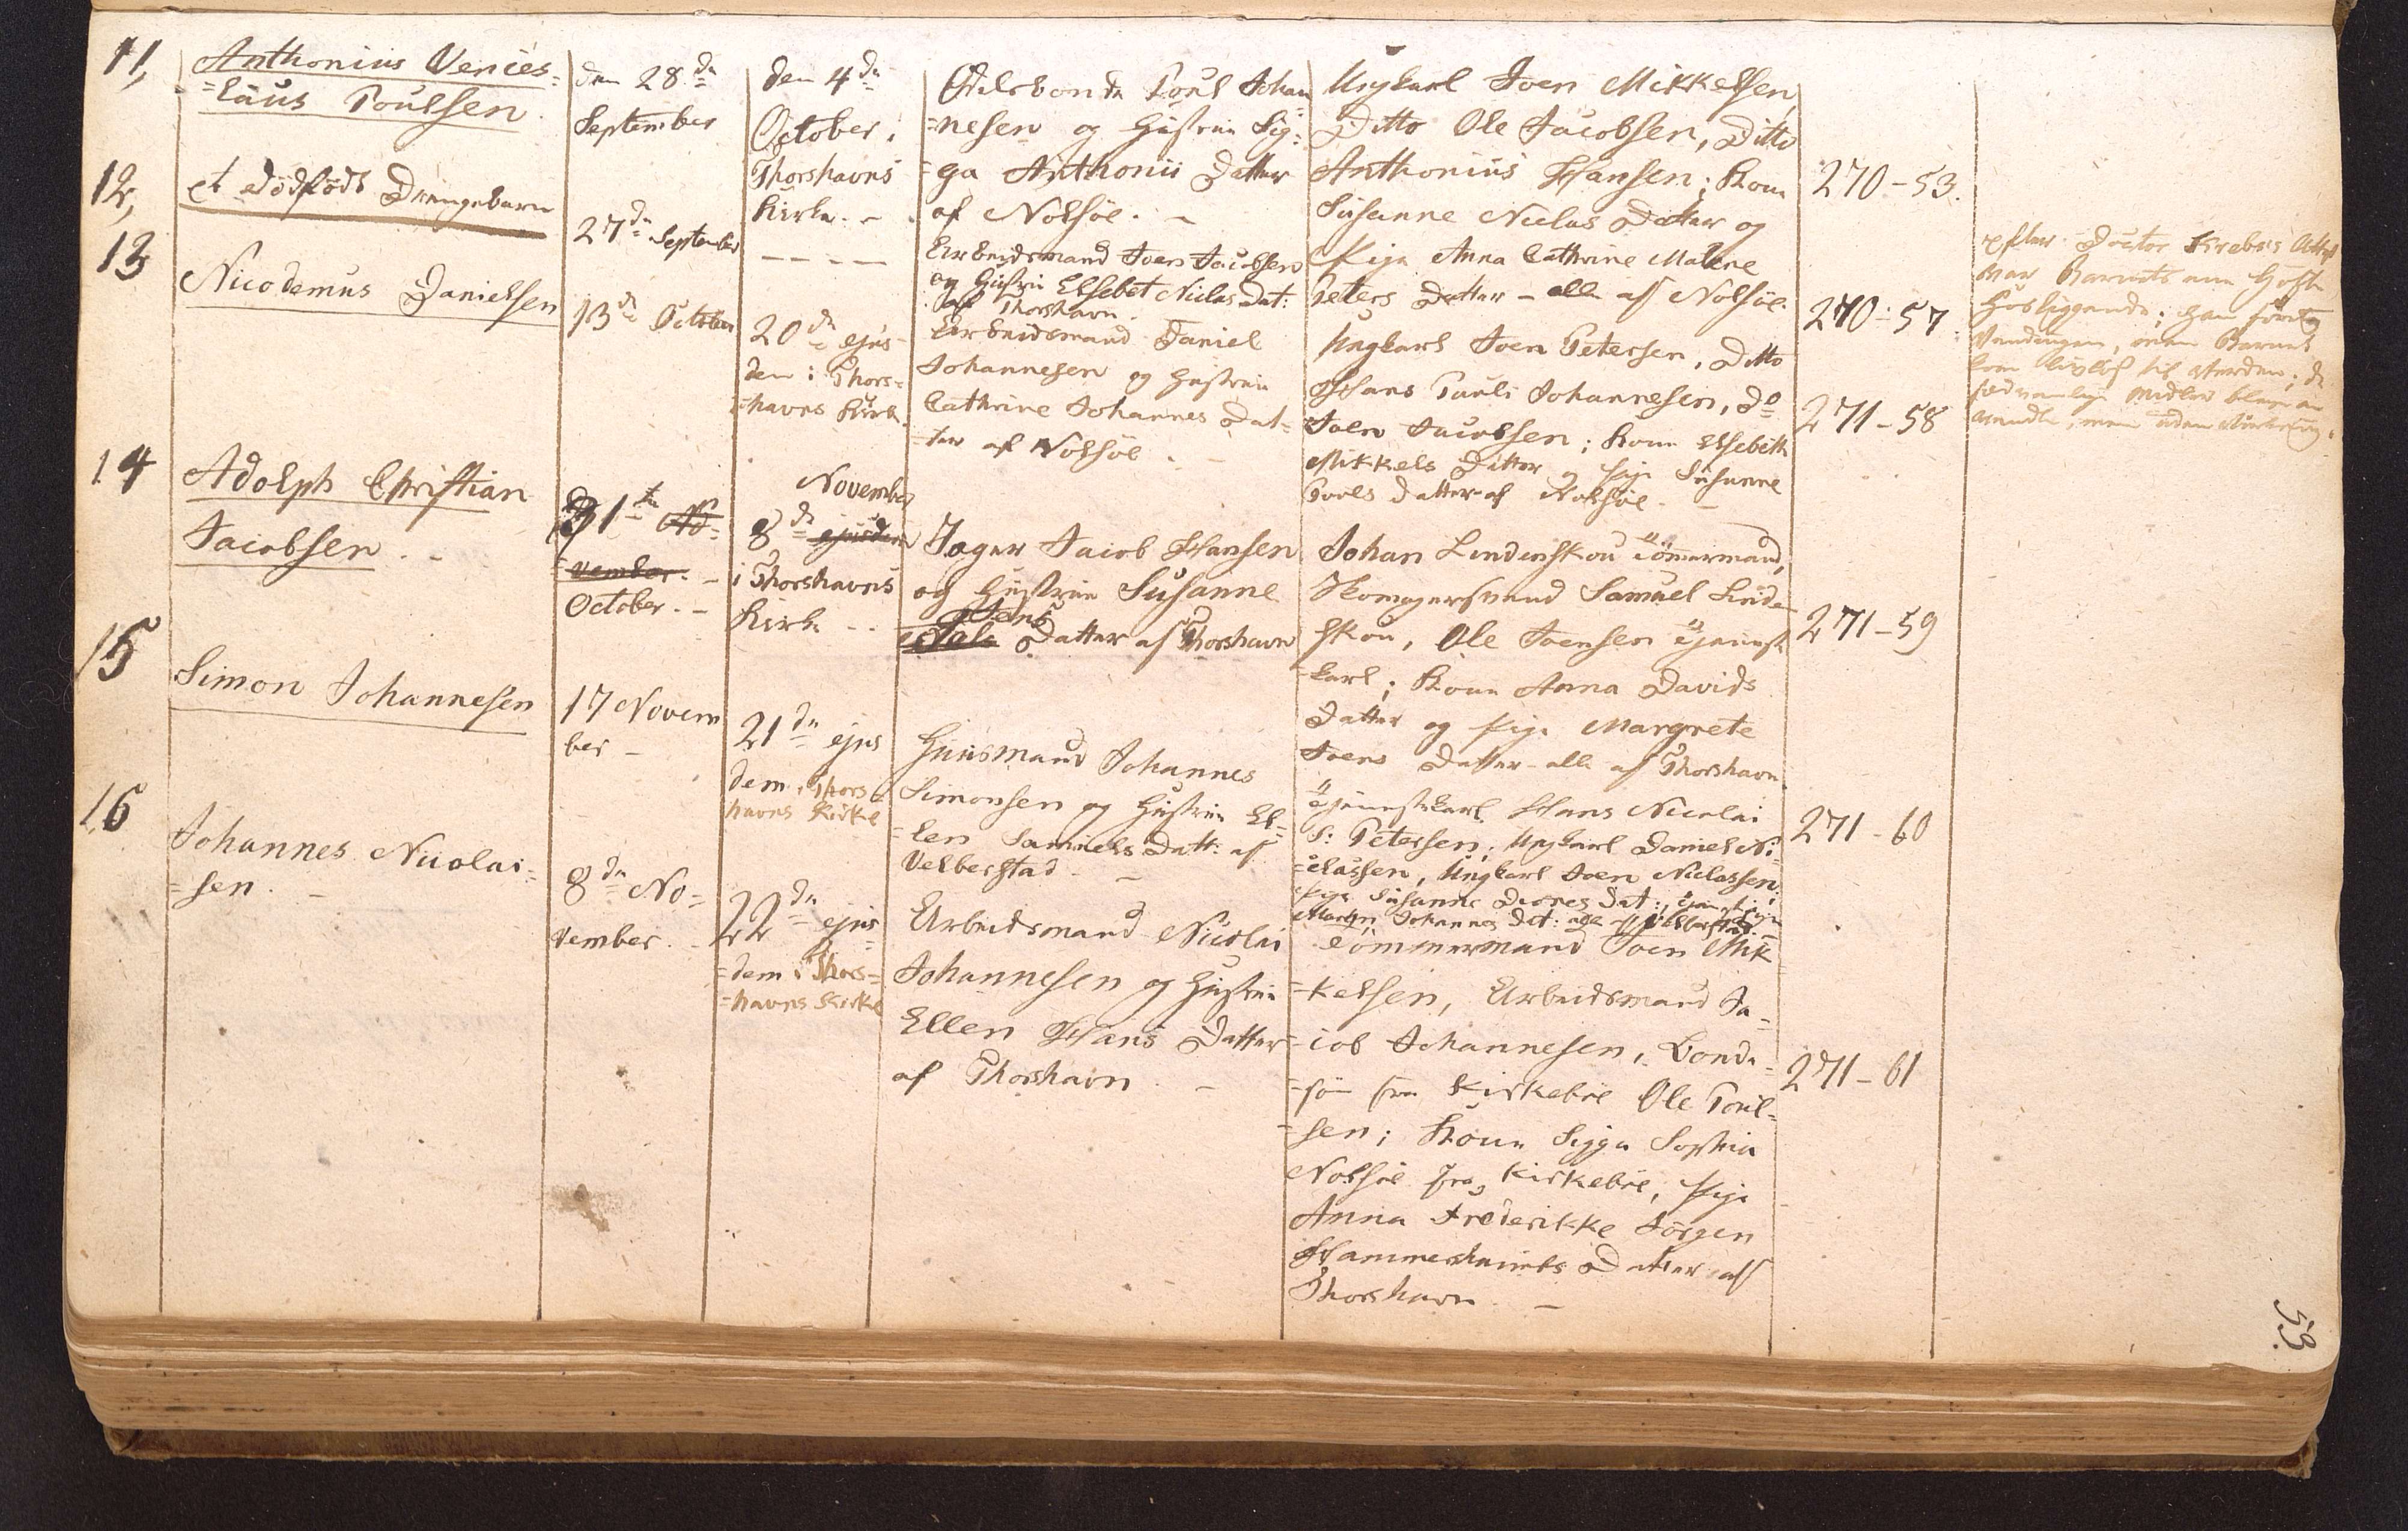 11,
Anthonius Vences=
=laus Poulsen.
den 28de
September
den 4de
October i
Thorshavns
Kirke. -
Odelsbonde Poul Johan
=nesen og Hustrue Sig=
=ga Anthonii Datter
af Nolsöe. -
Ungkarl Joen Mikkelsen,
Ditto Ole Jacobsen, Ditto
Anthonius Hansen; Kone
Susanne Niclas Datter og
Pige Anna Cathrine Malene
Peters Datter - alle af Nolsöe.
270-53.
12,
et dödfödt Drengebarn
27de September
- - - -
Arbeidsmand Joen Jacobsen
og Hustrue Elsebet Niclas Dat:
af Thorshavn.
270-57.
efter Doctor Krebs's Attest
var Barnets ene Hofte
Vendingen, inden Barnet
kom til Verden; de
sædvanlige Midler bleve an
vendte, men uden Virkning.
13
Nicodemus Danielsen
13de October
20de ejus
dem i Thors=
=havns Kirke.
Arbeidsmand Daniel
Johannesen og Hustrue
Cathrine Johannes Dat=
ter af Nolsöe. -
Ungkarl Joen Petersen, Ditto
Hans Pauli Johannesen, Do
Joen Jacobsen; Kone Elsebeth
Mikkels Datter og Pige Susanne
Poels Datter af Nolsöe. -
271-58
14
Adolph Christian
Jacobsen. -
31te No=
=vember. -
October. -
November
8de ejusdem
i Thorshavns
Kirke - -
Jæger Jacob Hansen
og Hustrue Susanne
Jens
Datter af Thorshavn
Johan Lindenskou Tömmermand,
Skomagersvend Samuel Linden
skou, Ole Joensen Tjeneste
karl; Kone Anna Davids
Datter og Pige Margrete
Joens Datter - alle af Thorshavn
271-59
15
Simon Johannesen
17 Novem
ber -
21de ejus
dem i Thors
havns Kirke
Huusmand Johannes
Simonsen og Hustrue El=
=len Samuels Datt: af
Velberstad. -
Tjenestekarl Hans Nicolai
S: Petersen; Ungkarl Daniel Ni=
=classen, Ungkarl Joen Niclassen,
Pige Susanne Dat:,
Johannes Dat: alle af Velberstad. -
271-60
16
Johannes Nicolai=
=sen. -
8de No=
vember. -
22de ejus
=dem i Thors=
=havns Kirke
Arbeidsmand Nicolai
Johannesen og Hustrue
Ellen Hans Datter
af Thorshavn. -
Tömmermand Joen Mik
=kelsen, Arbeidsmand Ja=
=cob Johannesen, Bonde=
=sön fra Kirkeböe Ole Poul=
=sen; Kone Sigga Sophia
Nolsöe fra Kirkeböe, Pige
Anna Frederikke Jörgen
Hammershaimbs Datter af
Thorshavn. -
271-61
53.